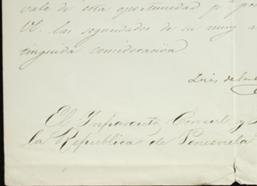 vale de esta oportunidad p
VE. las seguridades de su muy
tinguida consideracion
Luis de
El Infrascrito, Consul
la Republica de Venezuela